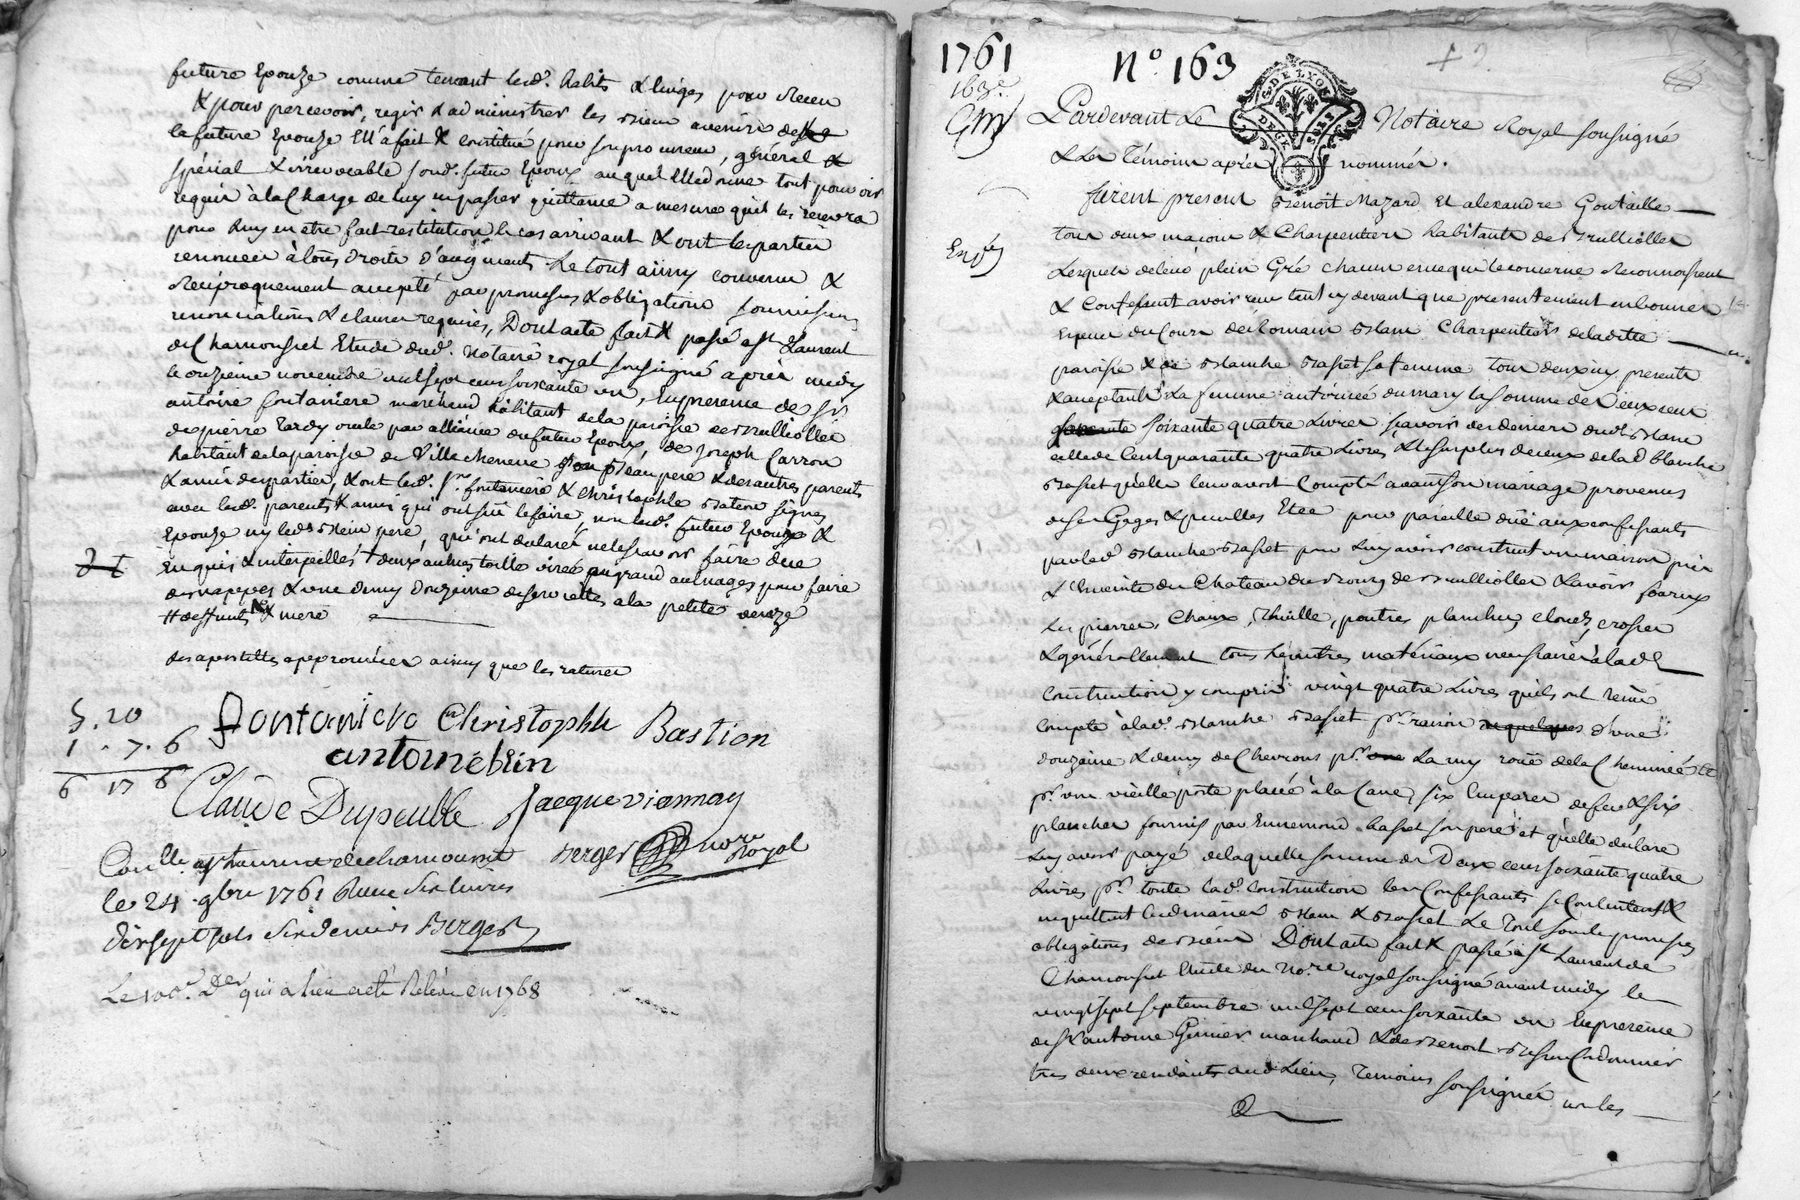 future Epouze comme tenant lesd. habits & linges pour Receu
& pour percevoir, regir & administrer les Biens avenirs de
la future Epouze Ell'a fait & constitué pour son procureur, général &
spécial & irrévocable sond. futur Epoux auquel Elle donne tout pouvoir
requis à la Charge de luy en passer quittance a mesure qu'il les recevra
pour luy en etre fait restitution le cas arrivant & ont les parties
renoncées à tous droits d'augments le tout ainsy convenu &
Réciproquement accepté par promesses & obligations soumissions
renonciations & clauses requises, Dont acte fait & passé a St Laurent
de Chamousset Etude dud. Notaire royal soussigné après midy
le onzieme novembre mil sept cens soixante un, En presence de Sr
antoine fontaniere marchand habitant de la paroisse de Brulliolles
de pierre Tardy oncle par alliance du futur Epoux, de Joseph Carron
habitant de la paroisse de Villecheneve son Beau pere & des autres parents
& amis des parties, & ont led. Sr. fontaniere & Christophle Bation signés
avec lesd. parents & amis qui ont sçu le faire, non lesd. futur Epoux &
Epouze ny led. pere, qui ont declaré ne le sçavoir faire due
Enquis & interpellés + deux autres toille en grand aulnages pour faire
des nappes & une demy Douzaine de serviettes a la petite venize
# deffunts & mere
des apostilles approuvées ainsy que les ratures
5. 20
1 . 7. 6
6 17 6
fontanière Christophle Bastion
antoine blein
Claude Dupeuble Jacque viannay
Berger nore Royal
Conlle. a st Laurent de chamousset
le 24 9bre 1761 Reçu Six livres
dixsept sols Six deniers Berger
Le 100e. Der qui a lieu a eté Relevé en 1768
1761 No 163
163e.
G. DE LYON
Pardevant Le Notaire Royal soussigné
& Les Témoins après nommés.
furent present Benoit Mazard Et alexandre Goutaille
tous deux maçons & Charpentiers habitants de Brulliolles
Lesquels de leur plein Gré chacun en ce qui le concerne Reconnoissent
& Confessent avoir receu tant cy devant que presentement en bonnes
Espeses du Cours de Romain Blanc Charpentier de la ditte
paroisse & de Blanche Basset sa femme tous deux icy presents
& acceptants La femme autorisée du mary la somme de Deux cens
soixante quatre Livres sçavoir des deniers dud. Blanc
celle de Cent quarante quatre Livres, & le surplus de ceux de lad. blanche
Basset qu'elle leur avoit Compté avant son mariage provenus
de ses Gages & pecules Etee pour pareille düe aux confessants
par lad. Blanche Basset pour luy avoir construit une maison près
L'enceinte du Chateau du Bourg de Brulliolles & avoir fournys
les pierres, Chaux, Thuille, poutres planches, clouds, crosses
& généralement tous les autres matériaux necessaires à lad.
Construction y compris vingt quatre Livres qu'ils ont tenu
compte à lad. Blanche Basset pr. raison d'une
douzaine & demy de Chevrons pr. Lamy rouë de la Cheminée &
pr. une vieille porte placée à la Cave, six Emparres de feu & six
planches fournis par Ennemond basset son pere et qu'elle declare
luy avoir payé de laquelle somme de Deux cens soixante quatre
Livres pr. toute lad. construction les Confessants se Contentent &
en quittent lesd. mariés Blanc & Basset Le Tout sous les promesses
obligations de Biens Dont acte fait & passé a St Laurent de
Chamousset Etude du Nore. royal soussigné avant midy le
vingt sept septembre mil sept cens soixante un En presence
de Sr antoine Grimer marchand & de Benoit Cordonnier
tous deux residants aud. Lieu, Temoins soussignés non les